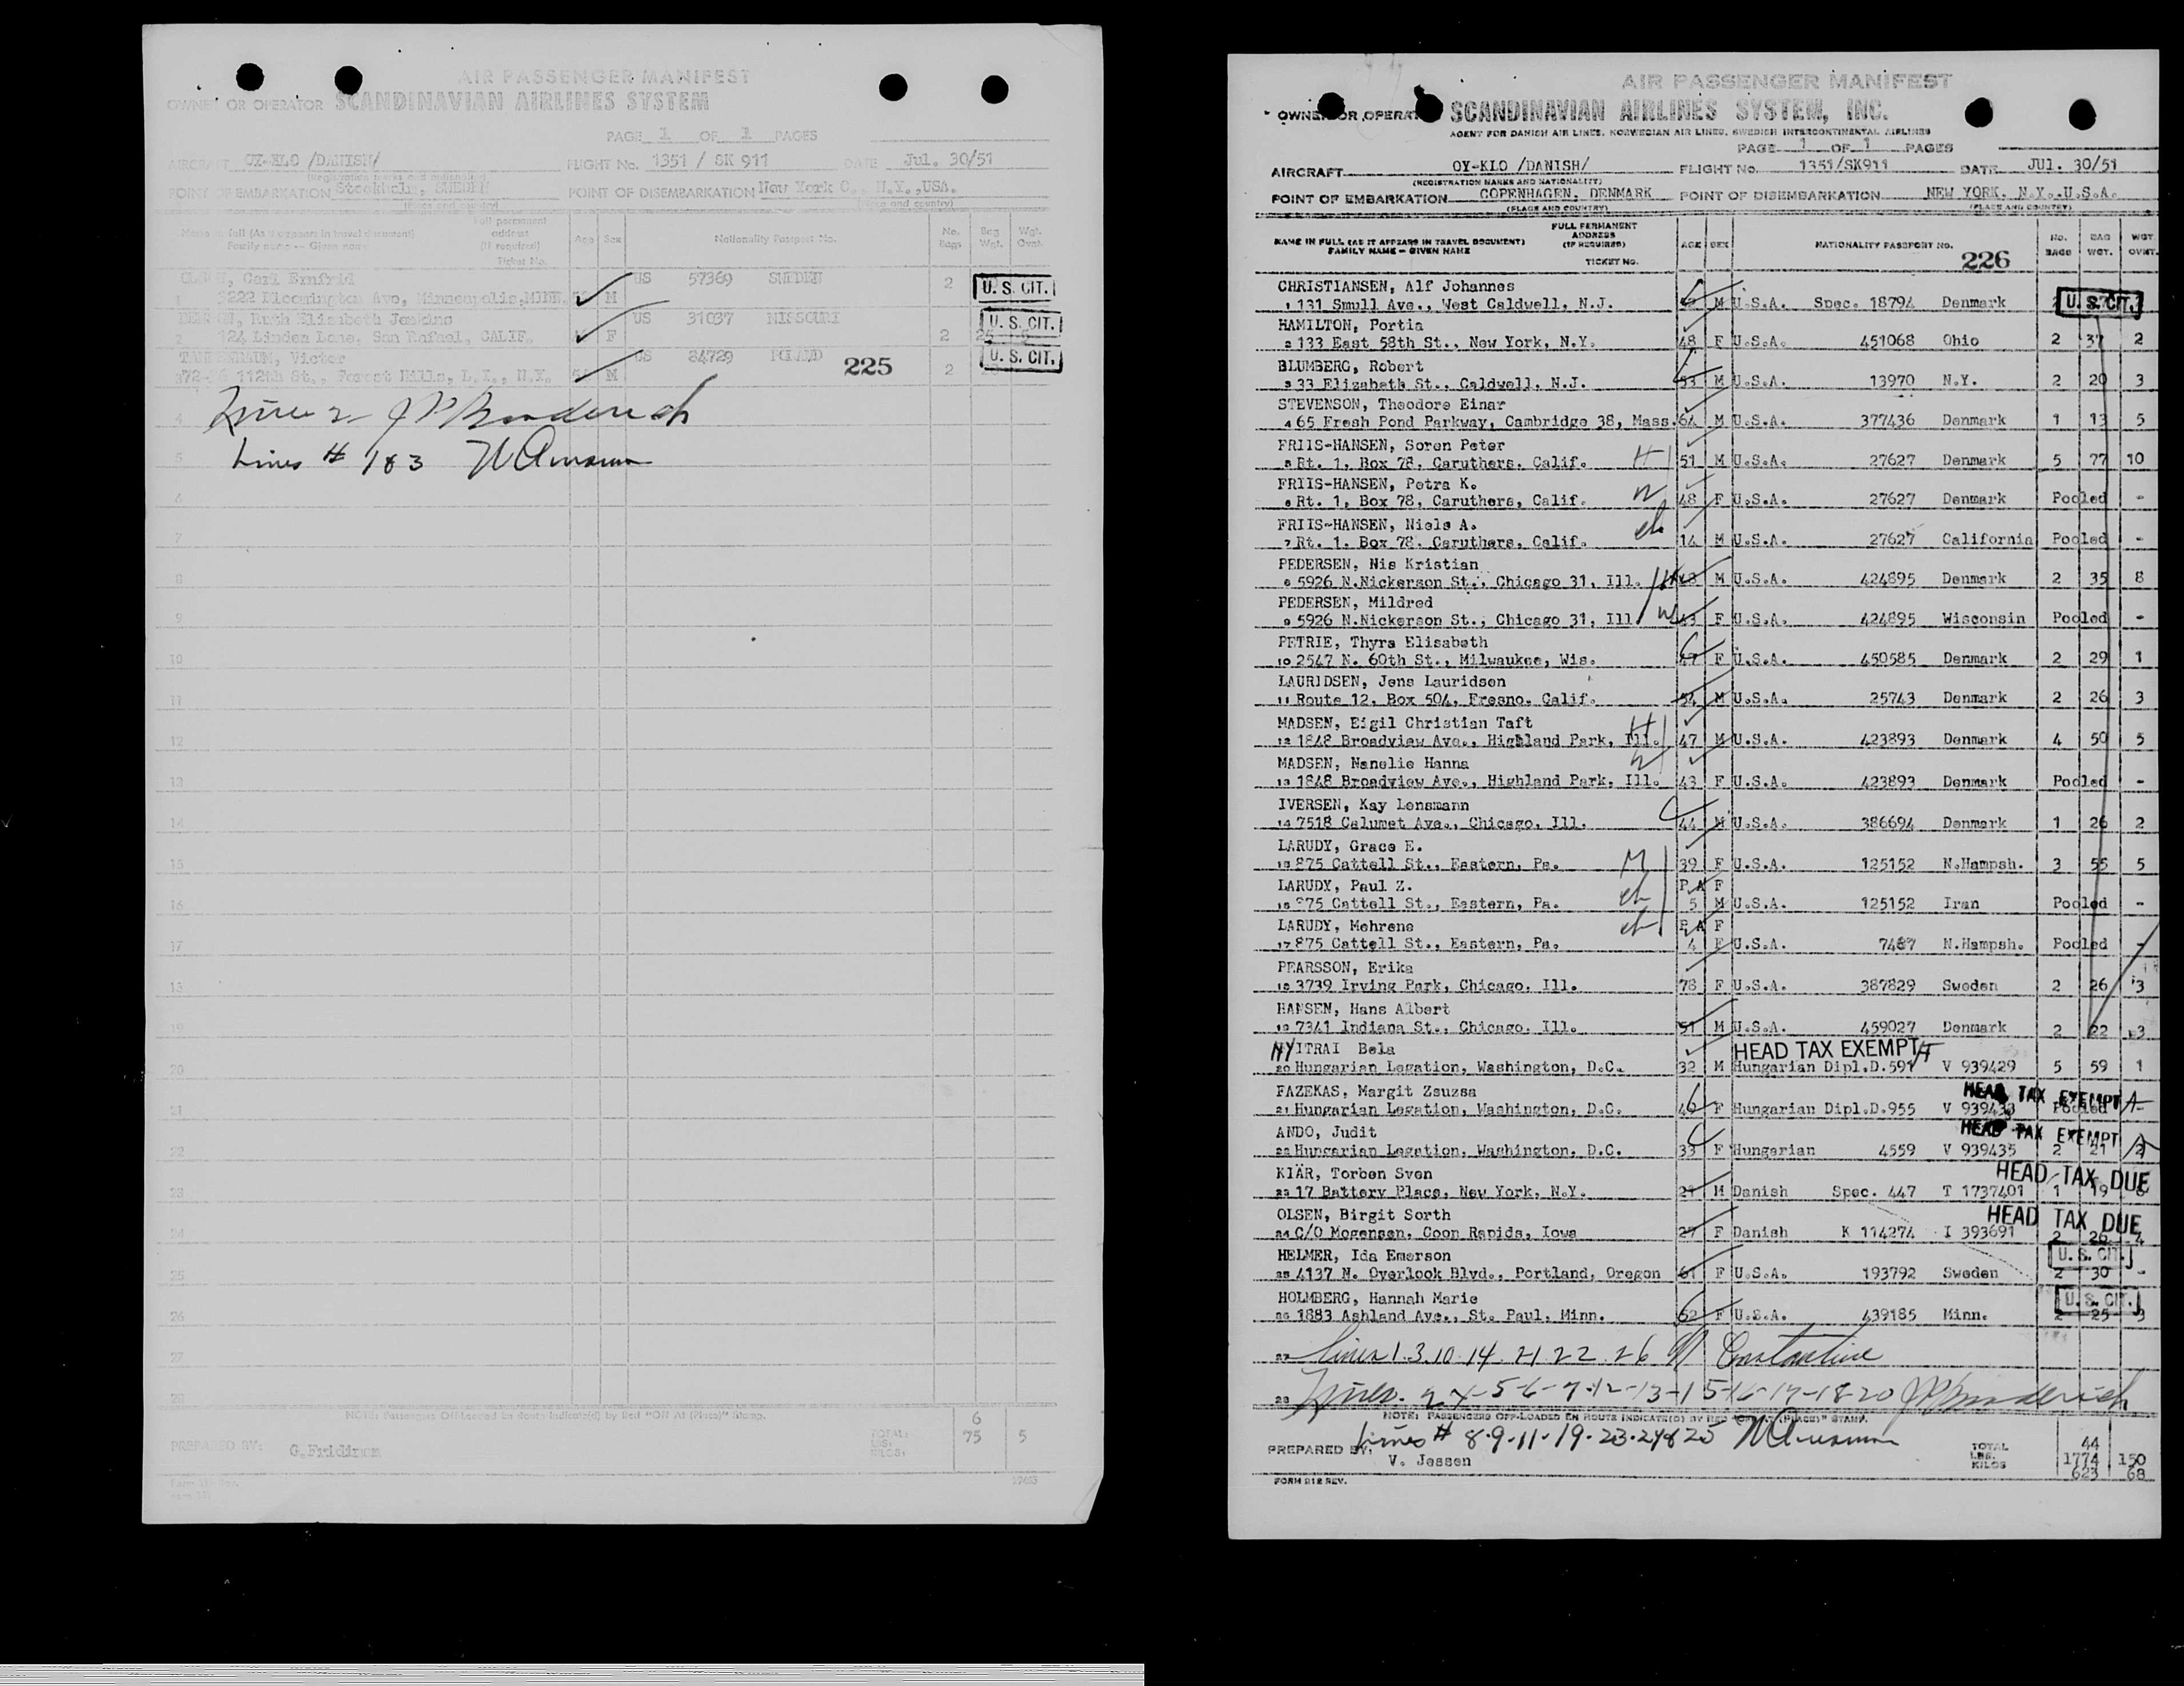 AIR PASSENGER MANIFEST
OWNER OR OPERATOR SCANDINAVIAN AIRLINES SYSTEM
PAGE 1 OF 1 PAGES
AIRCRAFT OY-KLO /DANISH/ FLIGHT No. 1351 / SK 911 DATE Jul. 30/51
(Registration marks and nationality)
POINT OF EMBARKATION Stockholm, SWEDEN POINT OF DISEMBARKATION New York C., N.Y.,USA.
(Place and country) (Place and country)
Name in full (As it appears in travel document) Family name — Given name Full permanent address (If required) Ticket No. Age Sex Nationality Passport No. No. Bags Bag Wgt. Wgt. Ovwt.
Carl Ernfrid US 57369 SWEDEN 2 U. S. CIT.
1 3222 Bloomington Ave, Minneapolis,MINN. M
Ruth Elizabeth Jenkins US 31037 MISSOURI U. S. CIT.
2 124 Linden Lane, San Rafael, CALIF. F 2
Victor US 84729 POLAND 225 2 U. S. CIT.
3 112th St., Forest Hills, L.I., N.Y. M
4 Lines 2
5 Lines # 1&3
6
7
8
9
10
11
12
13
14
15
16
17
18
19
20
21
22
23
24
25
26
27
28
NOTE: Passengers Off-Loaded En Route Indicate(d) by Red "Off At (Place)" Stamp.
6
PREPARED BY: G.Fridiman TOTAL: LBS. KILOS: 75 5
AIR PASSENGER MANIFEST
OWNER OR OPERAT SCANDINAVIAN AIRLINES SYSTEM, INC.
AGENT FOR DANISH AIR LINES, NORWEGIAN AIR LINES, SWEDISH INTERCONTINENTAL AIRLINES
PAGE 1 OF 1 PAGES
AIRCRAFT OY-KLO /DANISH/ FLIGHT No. 1351/SK911 DATE JUl. 30/51
(REGISTRATION MARKS AND NATIONALITY)
POINT OF EMBARKATION COPENHAGEN, DENMARK POINT OF DISEMBARKATION NEW YORK, N.Y.,U.S.A.
(PLACE AND COUNTRY) (PLACE AND COUNTRY)
NAME IN FULL (AS IT APPEARS IN TRAVEL DOCUMENT) FAMILY NAME — GIVEN NAME FULL PERMANENT ADDRESS (IF REQUIRED) TICKET NO. AGE SEX NATIONALITY PASSPORT NO. 226 NO. BAGS BAG WGT. WGT. OVWT.
CHRISTIANSEN, Alf Johannes
1 131 Smull Ave., West Caldwell, N.J. M U.S.A. Spec. 18794 Denmark U. S. CIT.
HAMILTON, Portia
2 133 East 58th St., New York, N.Y. 48 F U.S.A. 451068 Ohio 2 37 2
BLUMBERG, Robert
3 33 Elizabeth St., Caldwell, N.J. 53 M U.S.A. 13970 N.Y. 2 20 3
STEVENSON, Theodore Einar
4 65 Fresh Pond Parkway, Cambridge 38, Mass. 64 M U.S.A. 377436 Denmark 1 13 5
FRIIS-HANSEN, Soren Peter
5 Rt. 1, Box 78, Caruthers, Calif. H 51 M U.S.A. 27627 Denmark 5 77 10
FRIIS-HANSEN, Petra K.
6 Rt. 1, Box 78, Caruthers, Calif. W 48 F U.S.A. 27627 Denmark Pooled -
FRIIS-HANSEN, Niels A.
7 Rt. 1, Box 78, Caruthers, Calif. ch 14 M U.S.A. 27627 California Pooled -
PEDERSEN, Nis Kristian
8 5926 N.Nickerson St., Chicago 31, Ill. H M U.S.A. 424895 Denmark 2 35 8
PEDERSEN, Mildred
9 5926 N.Nickerson St., Chicago 31, Ill W 43 F U.S.A. 424895 Wisconsin Pooled -
PETRIE, Thyra Elisabeth
10 2547 N. 60th St., Milwaukee, Wis. 47 F U.S.A. 450585 Denmark 2 29 1
LAURIDSEN, Jens Lauridsen
11 Route 12, Box 504, Fresno, Calif. 54 M U.S.A. 25743 Denmark 2 26 3
MADSEN, Eigil Christian Taft
12 1848 Broadview Ave., Highland Park, Ill. H 47 M U.S.A. 423893 Denmark 4 50 5
MADSEN, Nanelie Hanna
13 1848 Broadview Ave., Highland Park, Ill. W 43 F U.S.A. 423893 Denmark Pooled -
IVERSEN, Kay Lensmann
14 7518 Calumet Ave., Chicago, Ill. 44 M U.S.A. 386694 Denmark 1 26 2
LARUDY, Grace E.
15 875 Cattell St., Eastern, Pa. M 39 F U.S.A. 125152 N.Hampsh. 3 55 5
LARUDY, Paul Z. P A F
16 875 Cattell St., Eastern, Pa. ch 5 M U.S.A. 125152 Iran Pooled -
LARUDY, Mehrene P A F
17 875 Cattell St., Eastern, Pa. ch 4 F U.S.A. 7487 N.Hampsh. Pooled -
PEARSSON, Erika
18 3739 Irving Park, Chicago, Ill. 78 F U.S.A. 387829 Sweden 2 26 3
HANSEN, Hans Albert
19 7341 Indiana St., Chicago, Ill. 51 M U.S.A. 459027 Denmark 2 22 3
NYITRAI Bela HEAD TAX EXEMPT A
20 Hungarian Legation, Washington, D.C. 32 M Hungarian Dipl.D.591 V 939429 5 59 1
FAZEKAS, Margit Zsuzsa HEAD TAX EXEMPT A
21 Hungarian Legation, Washington, D.C. F Hungarian Dipl.D.955 V 939433 Pooled -
ANDO, Judit HEAD TAX EXEMPT A
22 Hungarian Legation, Washington, D.C. 33 F Hungarian 4559 V 939435 2 21 2
KIÄR, Torben Sven HEAD TAX DUE
23 17 Battery Place, New York, N.Y. M Danish Spec. 447 T 1737401 1 19
OLSEN, Birgit Sorth HEAD TAX DUE
24 C/O Mogensen, Coon Rapids, Iowa 27 F Danish K 114274 I 393691 2 26 4
HELMER, Ida Emerson U. S. CIT.
25 4137 N. Overlook Blvd., Portland, Oregon 61 F U.S.A. 193792 Sweden 2 30 -
HOLMBERG, Hannah Marie U. S. CIT.
26 1883 Ashland Ave., St. Paul, Minn. 52 F U.S.A. 439185 Minn. 2 25 3
27 Lines 1. 3. 10. 14. 21. 22. 26 Constantine
28 Lines. 2-4-5-6-7-12-13-15-16-17-18-20
NOTE: PASSENGERS OFF-LOADED EN ROUTE INDICATE(D) BY RED "OFF AT (PLACE)" STAMP.
Lines # 8-9-11-19-23-24&25
PREPARED BY: V. Jessen TOTAL 44
LBS. 1774 150
KILOS 623 68
FORM 912 REV.